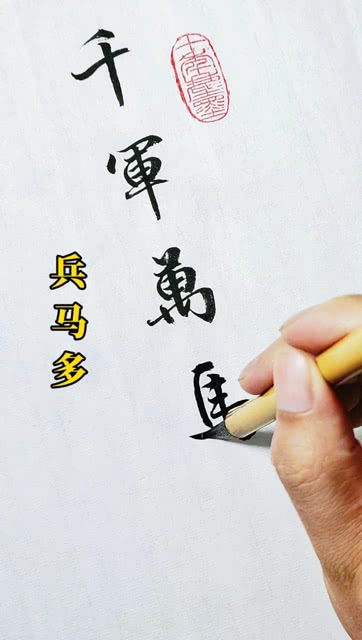 千軍萬馬
兵马多